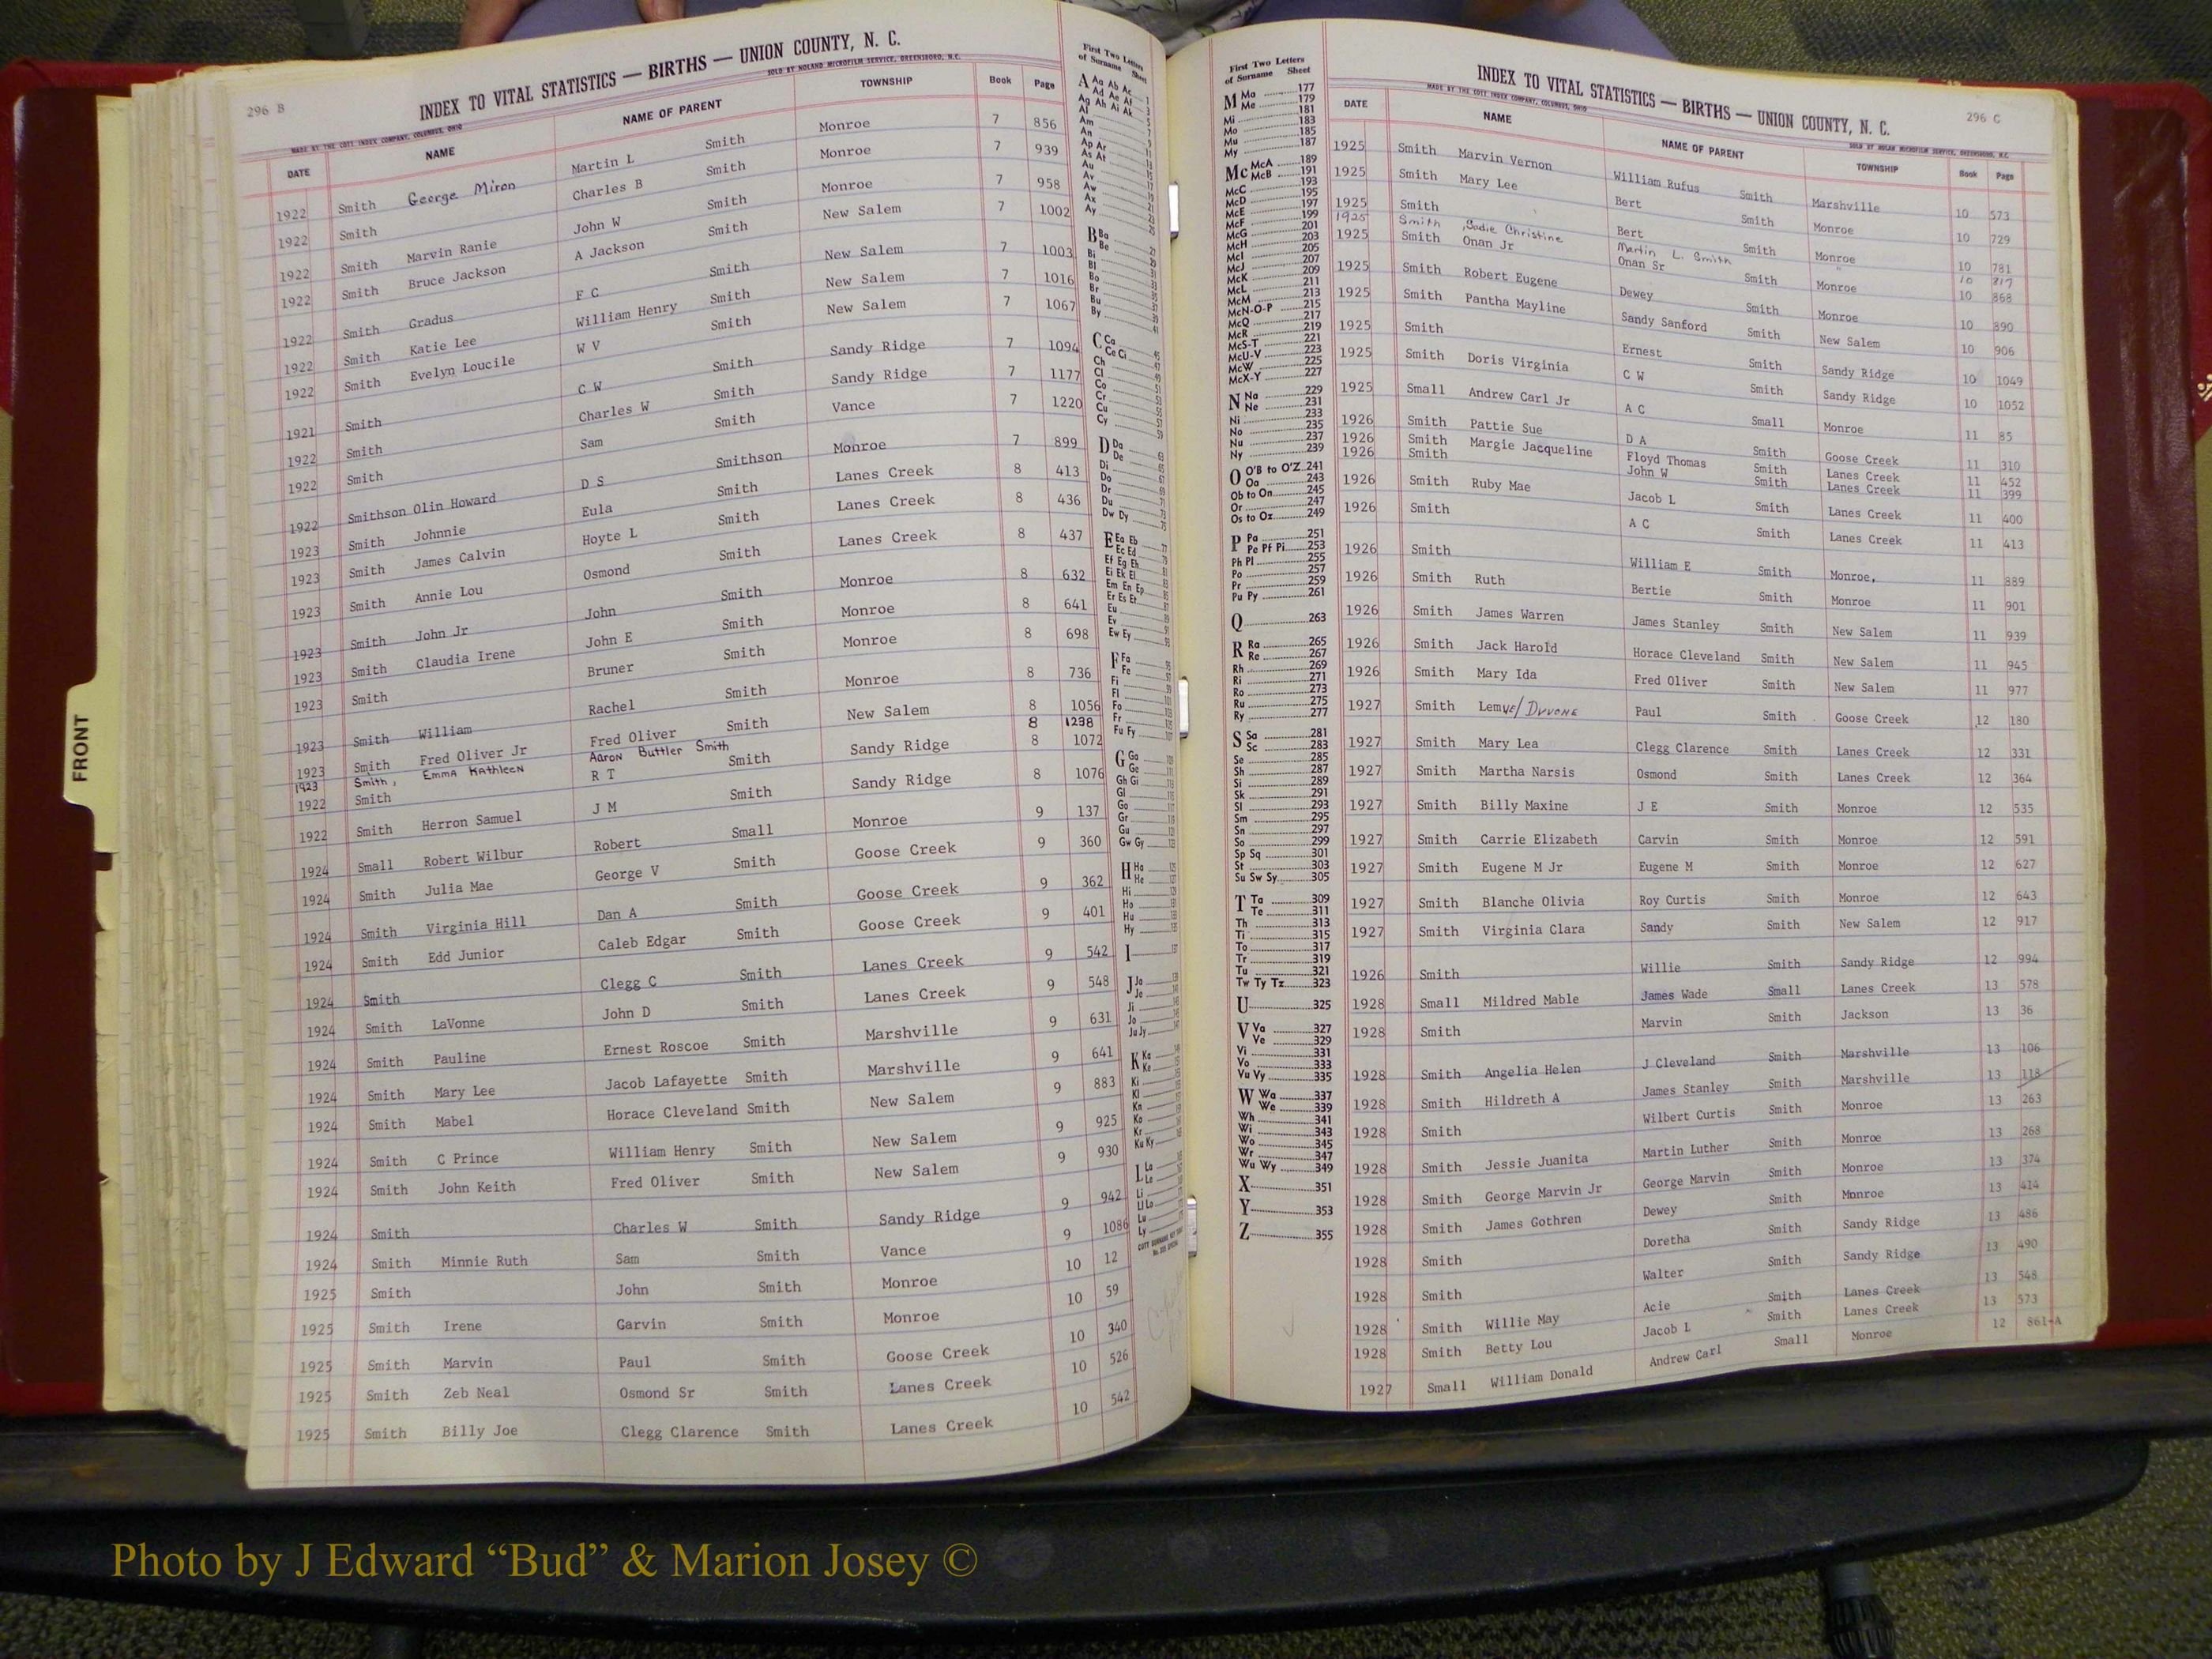 296 B
INDEX TO VITAL STATISTICS — BIRTHS — UNION COUNTY, N. C.
MADE BY THE COTT INDEX COMPANY, COLUMBUS, OHIO SOLD BY NOLAND MICROFILM SERVICE, GREENSBORO, N.C.
DATE NAME NAME OF PARENT TOWNSHIP Book Page
1922 Smith George Miron Martin L Smith Monroe 7 856
1922 Smith Charles B Smith Monroe 7 939
1922 Smith Marvin Ranie John W Smith Monroe 7 958
1922 Smith Bruce Jackson A Jackson Smith New Salem 7 1002
1922 Smith Gradus F C Smith New Salem 7 1003
1922 Smith Katie Lee William Henry Smith New Salem 7 1016
1922 Smith Evelyn Loucile W V Smith New Salem 7 1067
1921 Smith C W Smith Sandy Ridge 7 1094
1922 Smith Charles W Smith Sandy Ridge 7 1177
1922 Smith Sam Smith Vance 7 1220
1922 Smithson Olin Howard D S Smithson Monroe 7 899
1923 Smith Johnnie Eula Smith Lanes Creek 8 413
1923 Smith James Calvin Hoyte L Smith Lanes Creek 8 436
1923 Smith Annie Lou Osmond Smith Lanes Creek 8 437
1923 Smith John Jr John Smith Monroe 8 632
1923 Smith Claudia Irene John E Smith Monroe 8 641
1923 Smith Bruner Smith Monroe 8 698
1923 Smith William Rachel Smith Monroe 8 736
1923 Smith Fred Oliver Jr Fred Oliver Smith New Salem 8 1056
1923 Smith, Emma Kathleen Aaron Buttler Smith 8 1238
1922 Smith R T Smith Sandy Ridge 8 1072
1922 Smith Herron Samuel J M Smith Sandy Ridge 8 1076
1924 Small Robert Wilbur Robert Small Monroe 9 137
1924 Smith Julia Mae George V Smith Goose Creek 9 360
1924 Smith Virginia Hill Dan A Smith Goose Creek 9 362
1924 Smith Edd Junior Caleb Edgar Smith Goose Creek 9 401
1924 Smith Clegg C Smith Lanes Creek 9 542
1924 Smith LaVonne John D Smith Lanes Creek 9 548
1924 Smith Pauline Ernest Roscoe Smith Marshville 9 631
1924 Smith Mary Lee Jacob Lafayette Smith Marshville 9 641
1924 Smith Mabel Horace Cleveland Smith New Salem 9 883
1924 Smith C Prince William Henry Smith New Salem 9 925
1924 Smith John Keith Fred Oliver Smith New Salem 9 930
1924 Smith Charles W Smith Sandy Ridge 9 942
1924 Smith Minnie Ruth Sam Smith Vance 9 1086
1925 Smith John Smith Monroe 10 12
1925 Smith Irene Garvin Smith Monroe 10 59
1925 Smith Marvin Paul Smith Goose Creek 10 340
1925 Smith Zeb Neal Osmond Sr Smith Lanes Creek 10 526
1925 Smith Billy Joe Clegg Clarence Smith Lanes Creek 10 542
FRONT
First Two Letters
of Surname Sheet
A Aa Ab Ac
Ad Ae Af
Ag Ah Ai Ak
Al
Am
An
Ap Ar
As At
Au
Av
Aw
Ax
Ay
B Ba
Be
Bi
Bl
Bo
Br
Bu
By
C Ca
Ce Ci
Ch
Cl
Co
Cr
Cu
Cy
D Da
De
Di
Do
Dr
Du
Dw Dy
E Ea Eb
Ec Ed
Ef Eg Eh
Ei Ek El
Em En Ep
Er Es Et
Eu
Ev
Ew Ey
F Fa
Fe
Fi
Fl
Fo
Fr
Fu Fy
G Ga
Ge
Gh Gi
Gl
Go
Gr
Gu
Gw Gy
H Ha
He
Hi
Ho
Hu
Hy
I
J Ja
Je
Ji
Jo
Ju Jy
K Ka
Ke
Ki
Kl
Kn
Ko
Kr
Ku Ky
L La
Le
Li
Ll Lo
Lu
Ly
First Two Letters
of Surname Sheet
M Ma 177
Me 179
Mi 181
Mo 183
Mu 185
My 187
Mc McA 189
McB 191
McC 193
McD 195
McE 197
McF 199
McG 201
McH 203
McI 205
McJ 207
McK 209
McL 211
McM 213
McN-O-P 215
McQ 217
McR 219
McS-T 221
McU-V 223
McW 225
McX-Y 227
N Na 229
Ne 231
Ni 233
No 235
Nu 237
Ny 239
O O'B to O'Z 241
Oa 243
Ob to On 245
Or 247
Os to Oz 249
P Pa 251
Pe Pf Pi 253
Ph Pl 255
Po 257
Pr 259
Pu Py 261
Q 263
R Ra 265
Re 267
Rh 269
Ri 271
Ro 273
Ru 275
Ry 277
S Sa 281
Sc 283
Se 285
Sh 287
Si 289
Sk 291
Sl 293
Sm 295
Sn 297
So 299
Sp Sq 301
St 303
Su Sw Sy 305
T Ta 309
Te 311
Th 313
Ti 315
To 317
Tr 319
Tu 321
Tw Ty Tz 323
U 325
V Va 327
Ve 329
Vi 331
Vo 333
Vu Vy 335
W Wa 337
We 339
Wh 341
Wi 343
Wo 345
Wr 347
Wu Wy 349
X 351
Y 353
Z 355
296 C
INDEX TO VITAL STATISTICS — BIRTHS — UNION COUNTY, N. C.
MADE BY THE COTT INDEX COMPANY, COLUMBUS, OHIO SOLD BY NOLAN MICROFILM SERVICE, GREENSBORO, N.C.
DATE NAME NAME OF PARENT TOWNSHIP Book Page
1925 Smith Marvin Vernon William Rufus Smith Marshville 10 573
1925 Smith Mary Lee Bert Smith Monroe 10 729
1925 Smith Bert Smith Monroe 10 781
1925 Smith, Sadie Christine Martin L. Smith " 10 817
1925 Smith Onan Jr Onan Sr Smith Monroe 10 868
1925 Smith Robert Eugene Dewey Smith Monroe 10 890
1925 Smith Pantha Mayline Sandy Sanford Smith New Salem 10 906
1925 Smith Ernest Smith Sandy Ridge 10 1049
1925 Smith Doris Virginia C W Smith Sandy Ridge 10 1052
1925 Small Andrew Carl Jr A C Small Monroe 11 85
1926 Smith Pattie Sue D A Smith Goose Creek 11 310
1926 Smith Margie Jacqueline Floyd Thomas Smith Lanes Creek 11 452
1926 Smith John W Smith Lanes Creek 11 399
1926 Smith Ruby Mae Jacob L Smith Lanes Creek 11 400
1926 Smith A C Smith Lanes Creek 11 413
1926 Smith William E Smith Monroe, 11 889
1926 Smith Ruth Bertie Smith Monroe 11 901
1926 Smith James Warren James Stanley Smith New Salem 11 939
1926 Smith Jack Harold Horace Cleveland Smith New Salem 11 945
1926 Smith Mary Ida Fred Oliver Smith New Salem 11 977
1927 Smith Lemuel Paul Smith Goose Creek 12 180
1927 Smith Mary Lea Clegg Clarence Smith Lanes Creek 12 331
1927 Smith Martha Narsis Osmond Smith Lanes Creek 12 364
1927 Smith Billy Maxine J E Smith Monroe 12 535
1927 Smith Carrie Elizabeth Carvin Smith Monroe 12 591
1927 Smith Eugene M Jr Eugene M Smith Monroe 12 627
1927 Smith Blanche Olivia Roy Curtis Smith Monroe 12 643
1927 Smith Virginia Clara Sandy Smith New Salem 12 917
1926 Smith Willie Smith Sandy Ridge 12 994
1928 Small Mildred Mable James Wade Small Lanes Creek 13 578
1928 Smith Marvin Smith Jackson 13 36
1928 Smith Angelia Helen J Cleveland Smith Marshville 13 106
1928 Smith Hildreth A James Stanley Smith Marshville 13 118
1928 Smith Wilbert Curtis Smith Monroe 13 263
1928 Smith Jessie Juanita Martin Luther Smith Monroe 13 268
1928 Smith George Marvin Jr George Marvin Smith Monroe 13 374
1928 Smith James Gothren Dewey Smith Monroe 13 414
1928 Smith Doretha Smith Sandy Ridge 13 486
1928 Smith Walter Smith Sandy Ridge 13 490
1928 Smith Willie May Acie Smith Lanes Creek 13 548
1928 Smith Betty Lou Jacob L Smith Lanes Creek 13 573
1927 Small William Donald Andrew Carl Small Monroe 12 861-A
Photo by J Edward “Bud” & Marion Josey ©